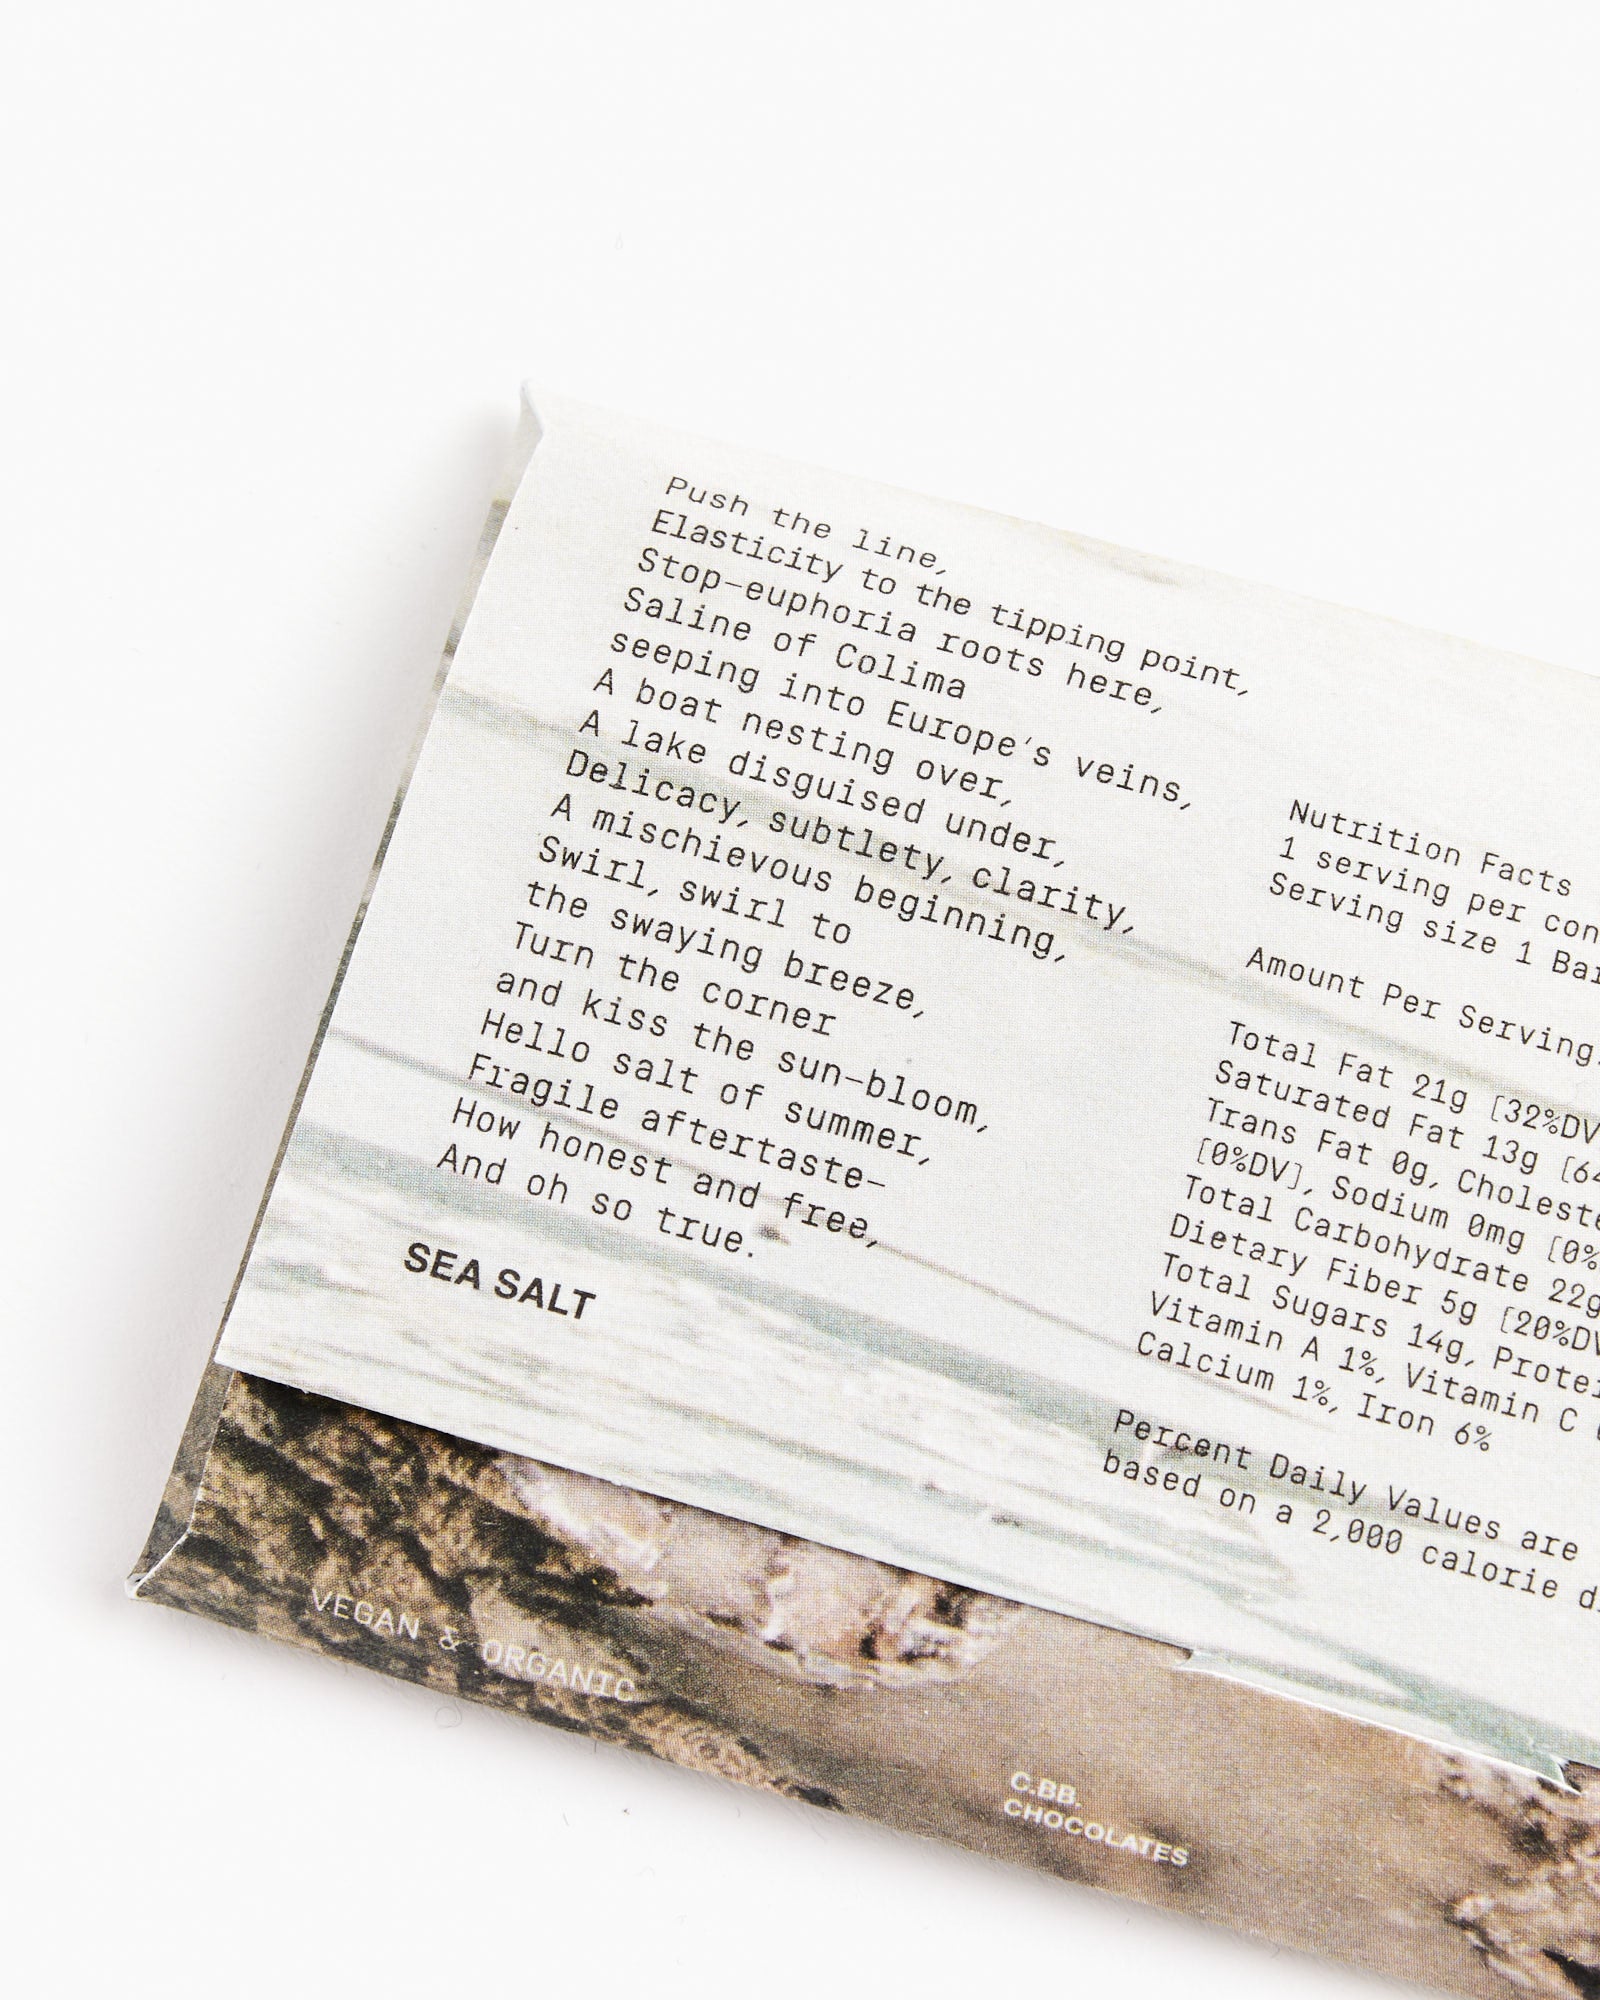 Push the line,
Elasticity to the tipping point,
Stop-euphoria roots here,
Saline of Colima
seeping into Europe's veins,
A boat nesting over,
A lake disguised under,
Delicacy, subtlety, clarity,
A mischievous beginning,
Swirl, swirl to
the swaying breeze,
Turn the corner
and kiss the sun-bloom,
Hello salt of summer,
Fragile aftertaste-
How honest and free,
And oh so true.
SEA SALT
Nutrition Facts
1 serving per con
Serving size 1 Bar
Amount Per Serving
Total Fat 21g [32%DV
Saturated Fat 13g [64
Trans Fat 0g, Choleste
[0%DV], Sodium 0mg [0%
Total Carbohydrate 22g
Dietary Fiber 5g [20%DV
Total Sugars 14g, Protei
Vitamin A 1%, Vitamin C
Calcium 1%, Iron 6%
Percent Daily Values are
based on a 2,000 calorie d
VEGAN & ORGANIC
C.BB.
CHOCOLATES